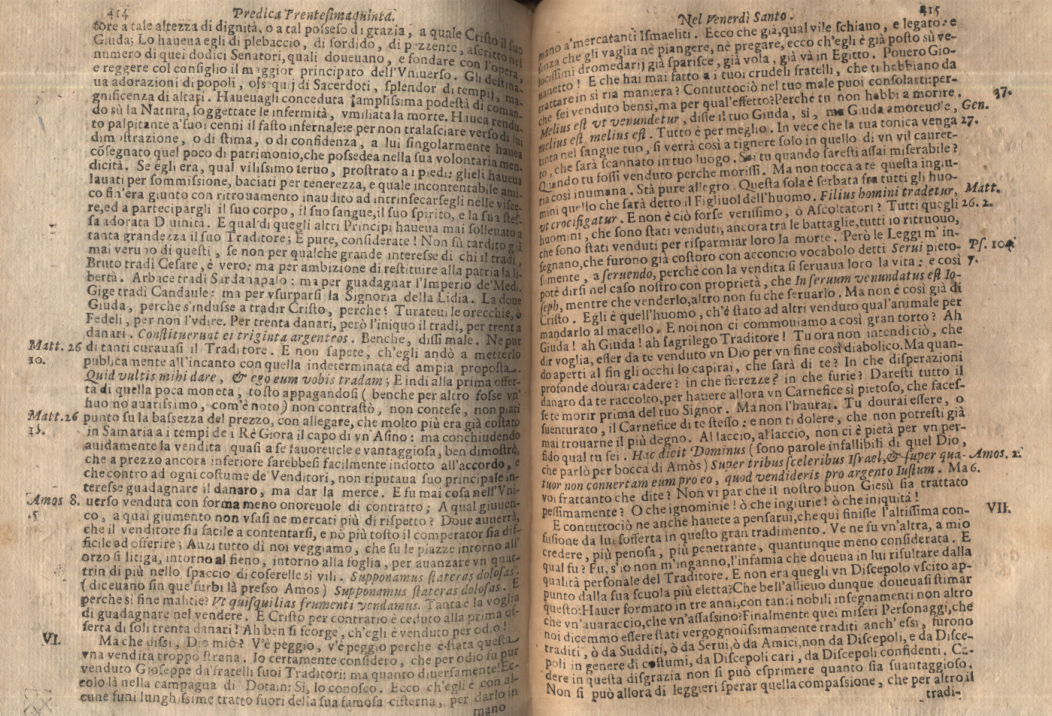 414 Predica Trentesimaquinta.
tore a tale altezza di dignità, o a tal possesso di grazia, a quale Cristo il suo
Giuda; Lo haueua egli di plebaccio, di sordido, di pezzente, ascritto nel
numero di quei dodici Senatori, quali doueuano, e fondare con l'opera,
e reggere col consiglio il maggior principato dell'Vniuerso. Gli destina-
ua adorazioni di popoli, ossequij di Sacerdoti, splendor di tempij, ma-
gnificenza di altari. Haueuagli conceduta amplissima podestà di coman-
do sù la Natura, soggettate le infermità, vmiliata la morte. Haueua rendu-
to palpitante a' suoi cenni il fasto infernale: e per non tralasciare verso di lui
dimostrazione, o di stima, o di confidenza, a lui singolarmente haueua
cōsegnato quel poco di patrimonio, che possedea nella sua volontaria men-
dicità. Se egli era, qual vilissimo seruo, prostrato a i piedi; glieli haueua
lauati per sommissione, baciati per tenerezza, e quale incontentabile ami-
co fin'era giunto con ritrouamento inaudito ad intrinsecarsegli nelle visce-
re, ed a partecipargli il suo corpo, il suo sangue, il suo spirito, e la sua stes-
sa adorata Diuinità. E qual di quegli altri Principi haueua mai solleuato a
tanta grandezza il suo Traditore; E pure, considerate! Non fù tardito già
mai veruno di questi, se non per qualche grande interesse di chi il tradì.
Bruto tradì Cesare, è vero: ma per ambizione di restituire alla patria la li-
bertà. Arbace tradì Sardanapalo: ma per guadagnar l'Imperio de' Medi.
Gige tradì Candaule: ma per vsurparsi la Signoria della Lidia. La doue
Giuda, perche s'indusse a tradir Cristo, perche? Turateui le orecchie, ò
Fedeli, per non l'vdire. Per trenta danari, però l'iniquo il tradì, per trenta
danari. Constituerunt ei triginta argenteos. Benche, dissi male. Ne pur
Matt. 26 di tanti curauasi il Traditore. E non sapete, ch'egli andò a metterlo
10. publicamente all'incanto con quella indeterminata ed ampia proposta.
Quid vultis mihi dare, & ego eum vobis tradam; E indi alla prima offer-
ta di quella poca moneta, tosto appagandosi (benche per altro fosse vn'
huomo auarissimo, com'è noto) non contrastò, non contese, non piatì
Matt. 26 punto su la bassezza del prezzo, con allegare, che molto più era già costato
15. in Samaria a i tempi de i Rè Giora il capo di vn Asino: ma conchiudendo
auidamente la vendita quasi a se fauoreuole e vantaggiosa, ben dimostrò,
che a prezzo ancora inferiore sarebbesi facilmente indotto all'accordo, e
che contro ad ogni costume de' Venditori, non riputaua suo principale in-
teresse guadagnare il danaro, ma dar la merce. E fu mai cosa nell'Vni-
Amos 8. uerso venduta con forma meno onoreuole di contratto; A qual giuuen-
5. co, a qual giumento non vsasi ne mercati più di rispetto? Doue auuerrà,
che il venditore sia facile a contentarsi, e nō più tosto il comperator sia dif-
ficile ad offerire; Anzi tutto di noi veggiamo, che su le piazze intorno all'
orzo si litiga, intorno al fieno, intorno alla foglia, per auanzare vn quat-
trin di più nello spaccio di coserelle sì vili. Supponamus stateras dolosas.
(diceuano fin que' furbi là presso Amos) Supponamus stateras dolosas. E
perche sì fine malitie? Vt quisquilias frumenti vendamus. Tanta è la voglia
di guadagnare nel vendere. E Cristo per contrario è ceduto alla prima of-
ferta di soli trenta danari! Ah ben si scorge, ch'egli è venduto per odio!
VI. Ma che dissi, Dio mio? V'è peggio, v'è peggio perche è stata questa
vna vendita troppo strana. Io certamente considero, che per odio fu pur
venduto Gioseppe da' fratelli suoi Traditori: ma quanto diuersamente! Ec-
colo là nella campagna di Dotain: Sì, lo conosco. Ecco ch'egli è con al-
cune funi lunghissime tratto fuori della sua famosa cisterna, per darlo in
mano
Nel Venerdì Santo. 415
mano a' mercatanti Ismaeliti. Ecco che già, qual vile schiauo, e legato: e
senza che gli vaglia nè piangere, nè pregare, ecco ch'egli è già posto sù ve-
locissimi dromedarij già sparisce, già vola, già và in Egitto. Pouero Gio-
uanetto! E che hai mai fatto a i tuoi crudeli fratelli, che ti habbiano da
trattare in sì ria maniera? Contuttociò nel tuo male puoi consolarti: per-
che sei venduto bensì, ma per qual'effetto? Perche tu non habbi a morire. 37.
Melius est vt venundetur, disse il tuo Giuda, sì, ma Giuda amoreuole, Gen.
melius est, melius est. Tutto è per meglio. In vece che la tua tonica venga 27.
tinta nel sangue tuo, si verrà così a tignere solo in quello di vn vil cauret-
to, che sarà scannato in tuo luogo. Sai tu quando saresti assai miserabile?
Quando tu fossi venduto perche morissi. Ma non tocca a te questa ingiu-
ria così inumana. Stà pure allegro. Questa sola è serbata fra tutti gli huo-
mini quello che sarà detto il Figliuol dell'huomo. Filius hominis tradetur, Matt.
vt crucifigatur. E non è ciò forse verissimo, ò Ascoltatori? Tutti quegli 26. 2.
huomini, che sono stati venduti, ancora tra le battaglie, tutti io ritruouo,
che sono stati venduti per risparmiar loro la morte. Però le Leggi m'in-
segnano, che furono già costoro con acconcio vocabolo detti Serui pieto- Ps. 104
samente, a seruendo, perchè con la vendita si seruaua loro la vita: e così 7.
potè dirsi nel caso nostro con proprietà, che In seruum venundatus est Io-
seph, mentre che venderlo, altro non fu che seruarlo. Ma non è così già di
Cristo. Egli è quell'huomo, ch'è stato ad altri venduto qual'animale per
mandarlo al macello. E noi non ci commouiamo a così gran torto? Ah
Giuda! ah Giuda! ah sagrilego Traditore! Tu ora non intendi ciò, che
dir voglia, esser da te venduto vn Dio per vn fine così diabolico. Ma quan-
do aperti al fin gli occhi lo capirai, che sarà di te? In che disperazioni
profonde dourai cadere? in che fierezze? in che furie? Daresti tutto il
danaro da te raccolto, per hauere allora vn Carnefice sì pietoso, che faces-
sete morir prima del tuo Signor. Ma non l'haurai. Tu dourai essere, o
suenturato, il Carnefice di te stesso: e non ti dolere, che non potresti già
mai trouarne il più degno. Al laccio, al laccio, non ci è pietà per vn per-
fido qual tu sei. Hac dicit Dominus (sono parole infallibili di quel Dio,
che parlò per bocca di Amòs) Super tribus sceleribus Israel, & super qua- Amos. 2.
tuor non conuertam eum pro eo, quod vendideris pro argento Iustum. Ma 6.
voi frattanto che dite? Non vi par che il nostro buon Giesù sia trattato
pessimamente? O che ignominie! ò che ingiurie! ò che iniquità!
E contuttociò ne anche hauete a pensarui, che qui finisse l'altissima con- VII.
fusione da lui sofferta in questo gran tradimento. Ve ne fu vn'altra, a mio
credere, più penosa, più penetrante, quantunque meno considerata. E
qual fu? Fu, s'io non m'inganno, l'infamia che doueua in lui risultare dalla
qualità personale del Traditore. E non era quegli vn Discepolo vscito ap-
punto dalla sua scuola più eletta? Che bell'allieuo dunque doueuasi stimar
questo: Hauer formato in tre anni, con tanti nobili insegnamenti non altro
che vn'auaraccio, che vn'assassino? Finalmente quei miseri Personaggi, che
noi dicemmo essere stati vergognosissimamente traditi anch'essi, furono
traditi, ò da Sudditi, ò da Serui, ò da Amici, non da Discepoli, e da Disce-
poli in genere di costumi, da Discepoli cari, da Discepoli confidenti. Ca-
dere in questa disgrazia non si può esprimere quanto sia suantaggioso.
Non si può allora di leggieri sperar quella compassione, che per altro il
tradi-